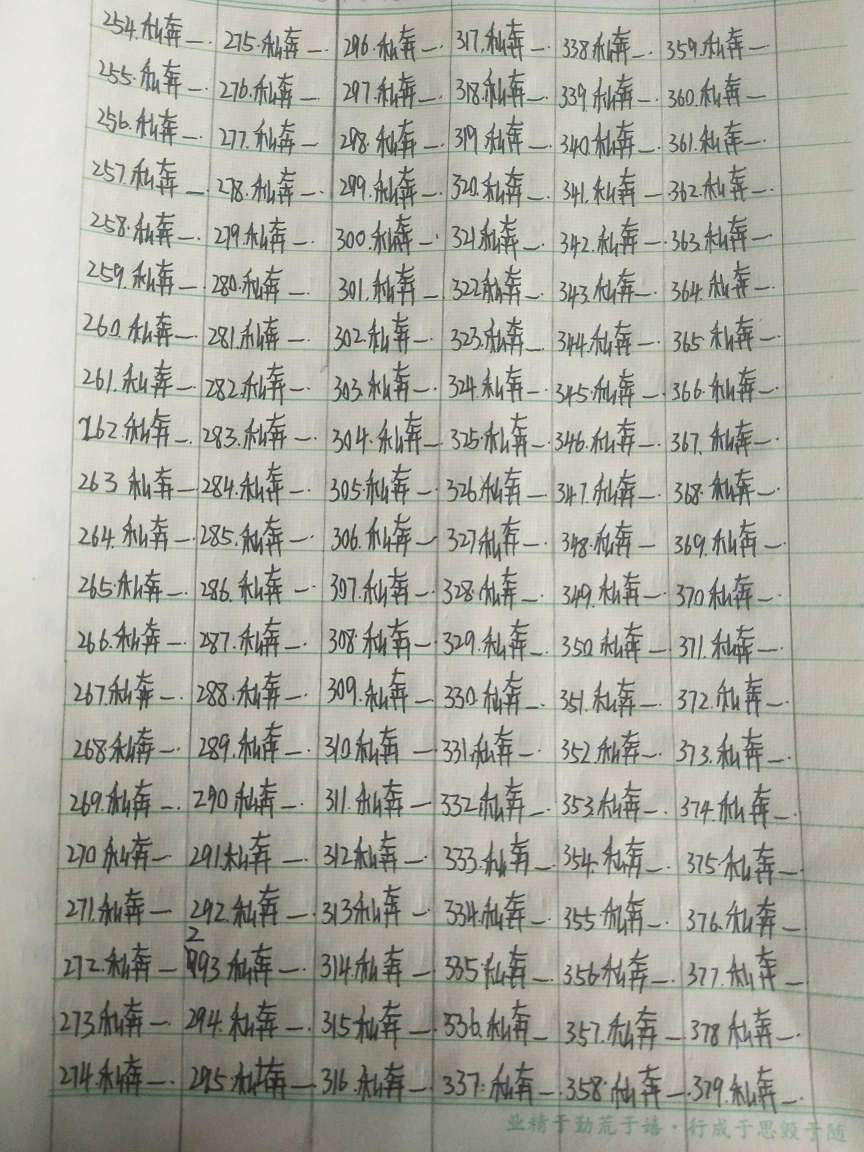 254.私奔一. 275.私奔一. 296.私奔一. 317.私奔一. 338私奔一. 359.私奔一
255.私奔一. 276.私奔一. 297.私奔一. 318.私奔一. 339.私奔一. 360.私奔一
256.私奔一. 277.私奔一 298.私奔一. 319私奔一. 340.私奔一. 361.私奔一
257.私奔一 278.私奔一. 299.私奔一. 320.私奔一. 341.私奔一 362.私奔一.
258.私奔一. 279.私奔一. 300.私奔一. 321私奔一. 342.私奔一. 363.私奔一
259.私奔一. 280.私奔一. 301.私奔一 322私奔一. 343.私奔一. 364.私奔一.
260.私奔一. 281.私奔一. 302.私奔一. 323.私奔一. 344.私奔一. 365私奔一.
261.私奔一. 282.私奔一. 303.私奔一. 324.私奔一. 345.私奔一. 366.私奔一.
262.私奔一. 283.私奔一. 304.私奔一. 325.私奔一. 346.私奔一. 367.私奔一.
263私奔一 284.私奔一. 305.私奔一. 326.私奔一. 347.私奔一. 368.私奔一.
264.私奔一. 285.私奔一. 306.私奔一 327私奔一. 348.私奔一 369.私奔一.
265.私奔一. 286.私奔一. 307.私奔一. 328.私奔一. 349.私奔一. 370私奔一.
266.私奔一. 287.私奔一. 308.私奔一 329.私奔一. 350.私奔一. 371.私奔一.
267.私奔一. 288.私奔一. 309.私奔一. 330.私奔一. 351.私奔一. 372.私奔一.
268.私奔一. 289.私奔一. 310私奔一 331.私奔一. 352.私奔一. 373.私奔一.
269.私奔一. 290私奔一. 311.私奔一 332.私奔一. 353.私奔一. 374.私奔一.
270私奔一 291.私奔一. 312私奔一. 333.私奔一. 354.私奔一. 375.私奔一.
271.私奔一 292.私奔一. 313私奔一. 334.私奔一. 355.私奔一. 376.私奔一.
272.私奔一 293私奔一. 314.私奔一. 335.私奔一. 356私奔一. 377.私奔一.
273私奔一 294.私奔一. 315私奔一. 336.私奔一. 357.私奔一. 378私奔一.
274.私奔一. 295.私奔一 316.私奔一. 337.私奔一. 358.私奔一. 379.私奔一.
业精于勤荒于嬉·行成于思毁于随